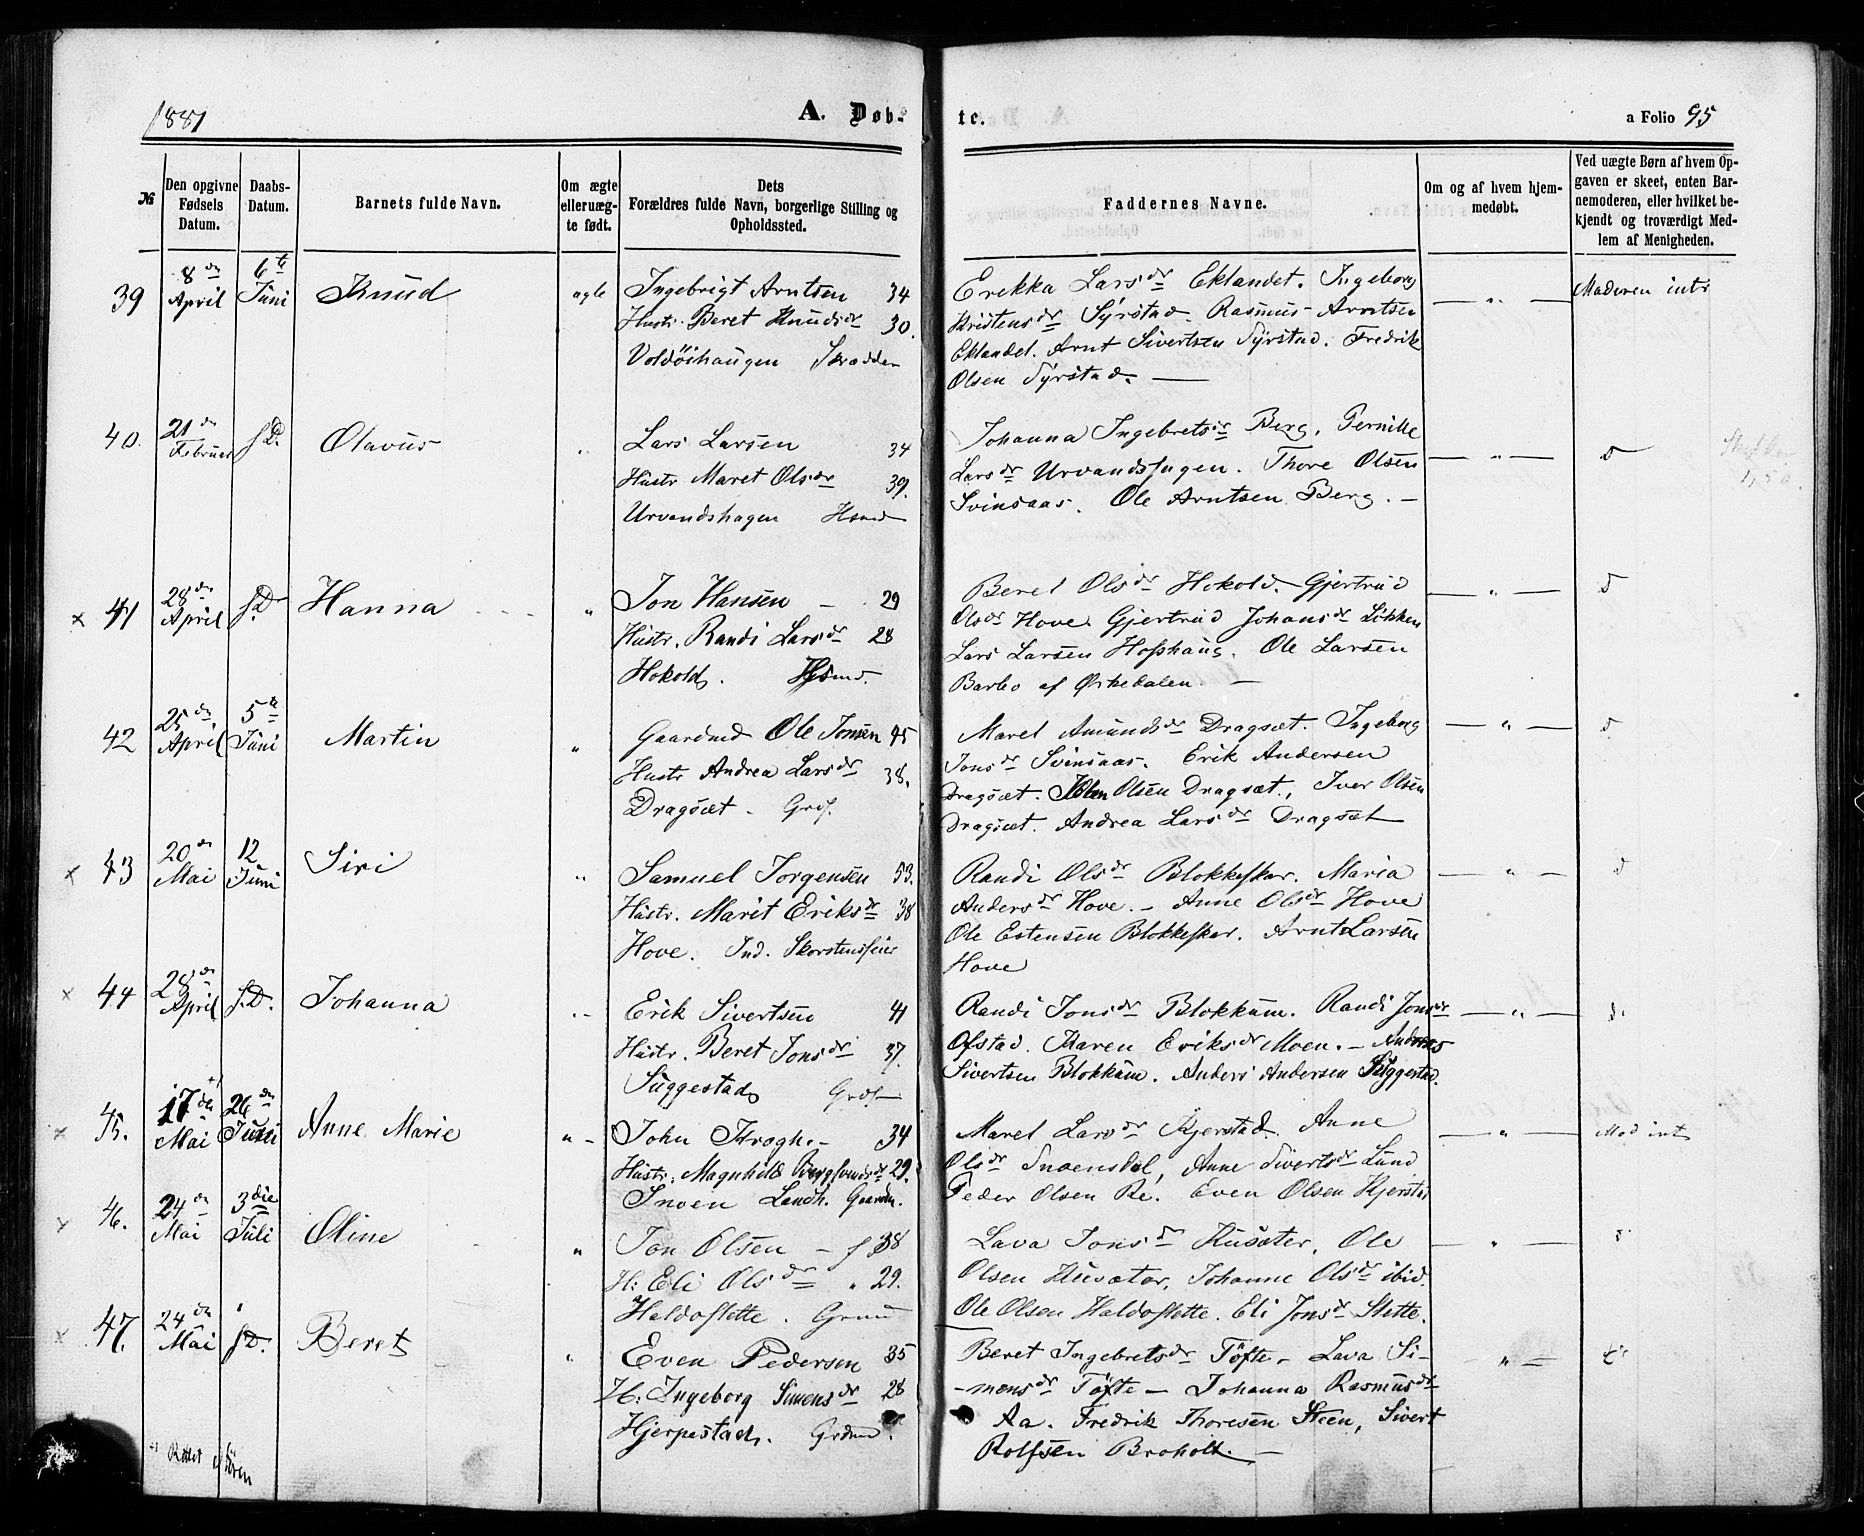 1881
A. Døb-
te.
a Folio 95
№
Den opgivne Fødsels Datum.
Daabs-Datum.
Barnets fulde Navn.
Om ægte eller uæg-te født.
Dets Forældres fulde Navn, borgerlige Stilling og Opholdssted.
Faddernes Navne.
Om og af hvem hjem-medøbt.
Ved uægte Børn af hvem Op-gaven er skeet, enten Bar-nemoderen, eller hvilket be-kjendt og troværdigt Med-lem af Menigheden.
39 8de April 6te Juni Knud ægte Ingebrigt Arntsen 34
Hustr. Beret Knudsdr 30.
Voldöihaugen Skrædder
Erekka Larsdr Eklandet. Ingeborg
Kristensdr Syrstad. Rasmus Arntsen
Eklandet. Arnt Sivertsen Syrstad. Fredrik
Olsen Syrstad. —
— „ —
Moderen intr
40. 21de Februar s.D. Olavus „ Lars Larsen 34
Hustr Maret Olsdr 39.
Urvandshagen Hsmd
Johanna Ingebretsdr Berg. Pernille
Larsdr Urvandshagen. Thore Olsen
Svinsaas. Ole Arntsen Berg. —
— „ —
1,50.
× 41 28de April s.D. Hanna „ Jon Hansen — 29
Hustr. Randi Larsdr 28
Hokold. Hsmd.
Beret Olsdr Hokold. Gjertrud
Olsdr Hove. Gjertrud Johansdr Løkken
Lars Larsen Hofshaug. Ole Larsen
Barbo af Ørkedalen. —
— „ —
42 25de April 5te Juni Martin „ Gaardmd Ole Jonsen 45
Hustr Andrea Larsdr 38.
Dragsæt. Grdf.
Maret Amundsdr Dragsæt. Ingeborg
Jonsdr Svinsaas. Erik Andersen
Dragsæt. John Olsen Dragsæt., Iver Olsen
Dragsæt. Andrea Larsdr Dragsæt
— „ —
× 43 20de Mai 12 Juni Siri „ Samuel Jorgensen 53.
Hustr. Marit Eriksdr 38
Hove. Ind. Skorstensfeier
Randi Olsdr Blokkeskar. Maria
Andersdr Hove. — Anne Olsdr Hove
Ole Estensen Blokkeskar. Arnt Larsen
Hove
— „ —
× 44 28de April s.D. Johanna „ Erik Sivertsen 41
Hustr. Beret Jonsdr 37.
Suggestad Grdf
Randi Jonsdr Blokkum. Randi Jonsdr
Ofstad. Karen Eriksdr Moen. — Andreas
Sivertsen Blokkum. Anders Andersen Suggestad.
— „ —
× 45. 17de Mai 26de Juni Anne Marie „ John Krogh — 34
Hustr. Magnhild Bergsvendsdr 29.
Snoen Landh. Gaardm.
Maret Larsdr Kjerstad. Anne
Olsdr Snoensdal, Anne Sivertsdr Lund
Peder Olsen Re. Even Olsen Kjerstad
— „ —
Mod intr
× 46. 24de Mai 3die Juli Oline „ Jon Olsen — f 38
H: Eli Olsdr „ 29.
Haldoslette. Grmd
Lava Jonsdr Husæter, Ole
Olsen Husæter, Johanne Olsdr ibid.
Ole Olsen Haldoslette. Eli Jonsdr Slette.
— „ —
× 47. 24de Mai s.D. Beret „ Even Pedersen 35
H: Ingeborg Simensdr 28
Hjerpestad. Grdmd.
Beret Ingebretsdr Töfte — Lava Si-
-mensdr Töfte — Johanna Rasmusdr
Aa. Fredrik Thoresen Steen, Sivert
Rolfsen Broholt. —
„ —
Rettet